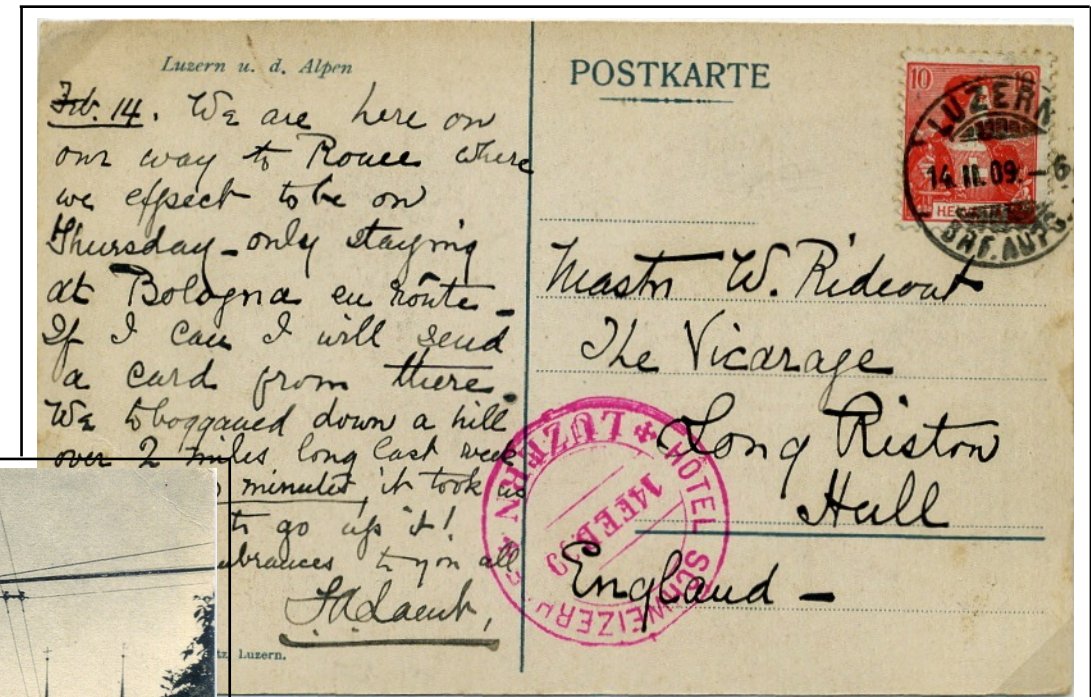 Luzern u. d. Alpen
Feb. 14. We are here on
our way to Rome where
we expect to be on
Thursday - only staying
at Bologna en route -
If I can I will send
a card from there.
We tobogganed down a hill
over 2 miles long last week
minutes, it took us
to go up it!
brances to you all
tz, Luzern.
POSTKARTE
10 10
HE
LUZERN
14. II. 09. - 6
BRF. AUFG.
Master W. Rideout
The Vicarage
Long Riston
Hull
England -
HOTEL SCHWEIZERH
LUZERN
14 FEB. 09